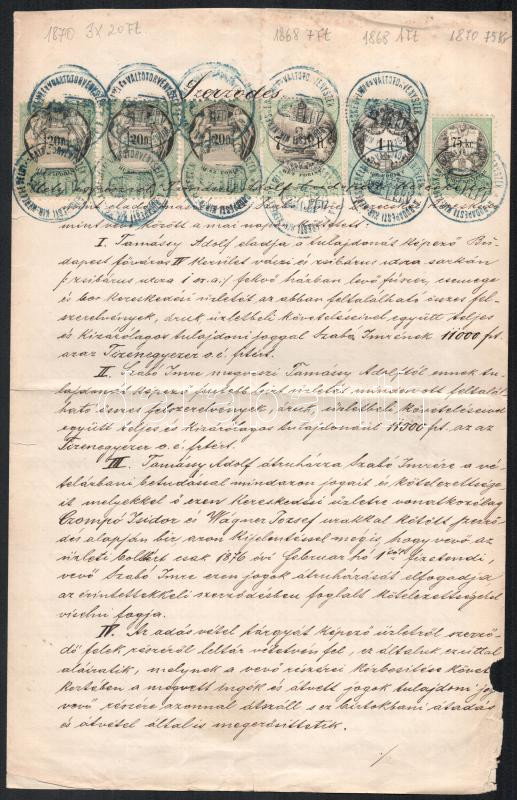 1870 3X20Ft 1868 7Ft 1868 1Ft 1870 75Kr
Szerződés
120 fl. 120 fl. 120 fl. 7 fl. 1 fl. 75 kr.
mint vevő között a mai napon
I. Tamássy Adolf eladja a tulajdonát képező Bu-
dapest főváros IV kerület váczi és zsibárus utcza sarkán
(zsibárus utcza 1 sz. a.) fekvő házban levő fűszer, csemege
és bor kereskedési üzletét az abban feltalálható összes fel-
szerelvények, áruk üzletbeli követeléseivel együtt teljes
és kizárólagos tulajdoni joggal Szabó Imrének 11000 frt.
azaz Tizenegyezer o. é. frtért.
II. Szabó Imre megveszi Tamássy Adolftól ennek tu-
lajdonát képező üzletét minden ott feltalál-
ható összes felszerelvény, áruk, üzletbeli követelésekkel
együtt teljes és kizárólagos tulajdonául 11500 frt. az az
Tizenegyezer o. é. frtért.
III. Tamássy Adolf átruházza Szabó Imrére a vé-
telárbani betudással mindazon jogait és kötelezettsége
it melyekkel ő ezen kereskedési üzletre vonatkozólag
Czompó Isidor és Wágner József urakkal kötött szerző-
dés alapján bír azon kijelentéssel mégis, hogy vevő az
üzleti boltbért csak 1876 évi Februar hó 1 től fizetendi,
vevő Szabó Imre ezen jogok átruházását elfogadja
az érintettekkeli szerződésben foglalt kötelezettségeket
viselni fogja.
IV. Az adás vétel tárgyát képező üzletről szerző-
dő felek részéről leltár vétetvén fel, ez általuk ezuttal
aláiratik, melynek a vevő részérei kézbesitése követ
keztében a megvett ingók és átvett jogok tulajdoni jog
vevő részére azonnal átszáll s ez birtokbani átadás
és átvétel által is megerősittetik.